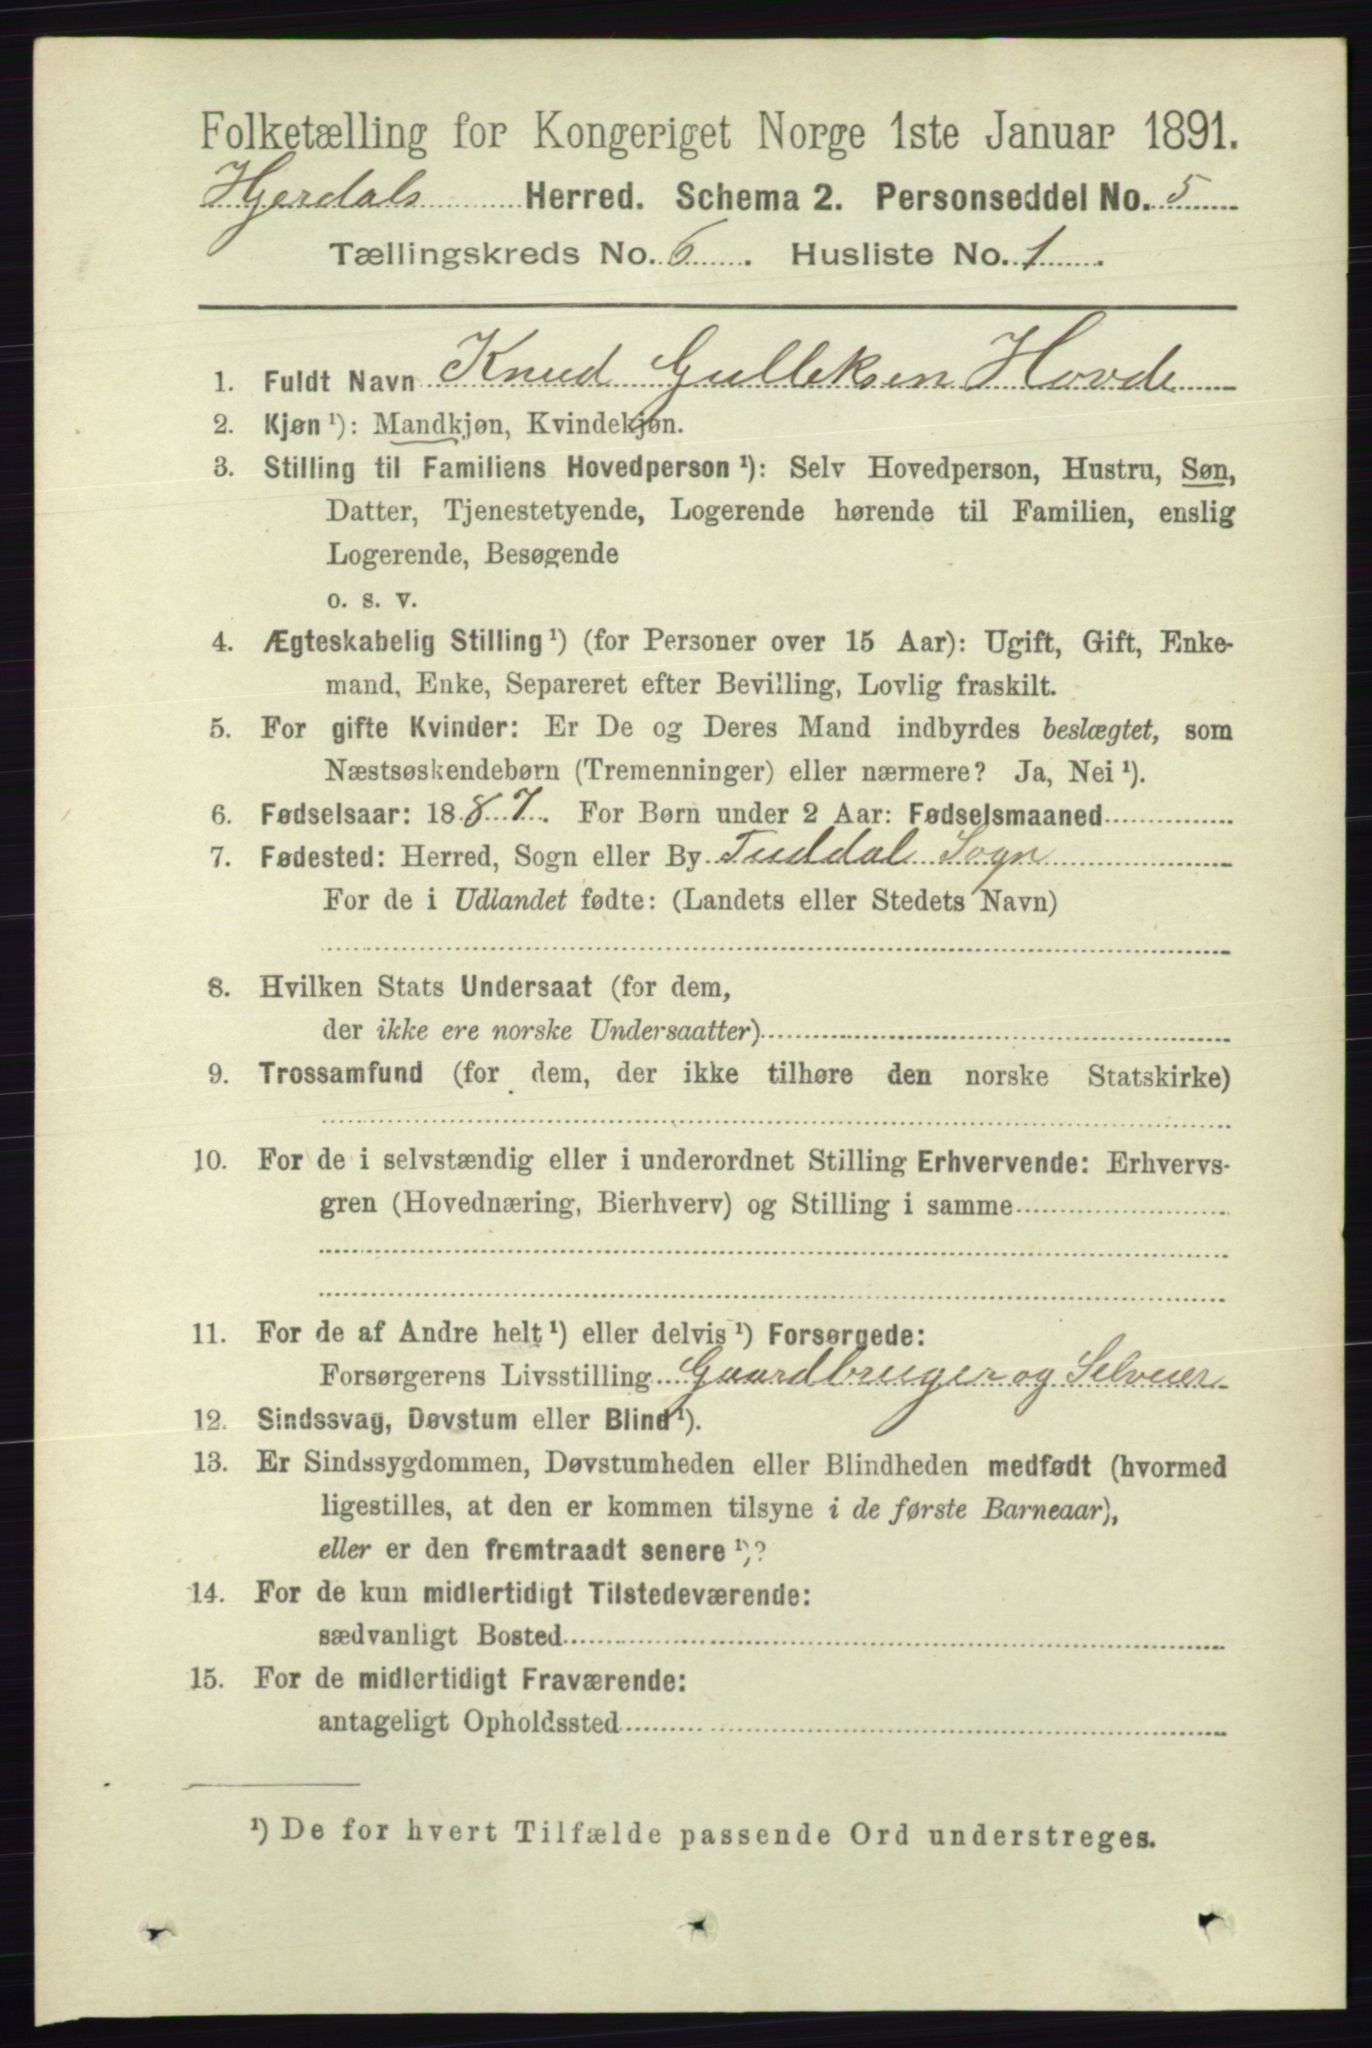 Folketælling for Kongeriget Norge 1ste Januar 1891.
Hjerdals Herred. Schema 2. Personseddel No. 5
Tællingskreds No. 6. Husliste No. 1.
1. Fuldt Navn Knud Gulleksen Hovde
2. Kjøn ¹): Mandkjøn, Kvindekjøn.
3. Stilling til Familiens Hovedperson ¹): Selv Hovedperson, Hustru, Søn,
Datter, Tjenestetyende, Logerende hørende til Familien, enslig
Logerende, Besøgende
o. s. v.
4. Ægteskabelig Stilling ¹) (for Personer over 15 Aar): Ugift, Gift, Enke-
mand, Enke, Separeret efter Bevilling, Lovlig fraskilt.
5. For gifte Kvinder: Er De og Deres Mand indbyrdes beslægtet, som
Næstsøskendebørn (Tremenninger) eller nærmere? Ja, Nei ¹).
6. Fødselsaar: 1887. For Børn under 2 Aar: Fødselsmaaned
7. Fødested: Herred, Sogn eller By Tuddal Sogn
For de i Udlandet fødte: (Landets eller Stedets Navn)
8. Hvilken Stats Undersaat (for dem,
der ikke ere norske Undersaatter)
9. Trossamfund (for dem, der ikke tilhøre den norske Statskirke)
10. For de i selvstændig eller i underordnet Stilling Erhvervende: Erhvervs-
gren (Hovednæring, Bierhverv) og Stilling i samme
11. For de af Andre helt ¹) eller delvis ¹) Forsørgede:
Forsørgerens Livsstilling Gaardbruger og Selveier
12. Sindssvag, Døvstum eller Blind ¹).
13. Er Sindssygdommen, Døvstumheden eller Blindheden medfødt (hvormed
ligestilles, at den er kommen tilsyne i de første Barneaar),
eller er den fremtraadt senere ¹)?
14. For de kun midlertidigt Tilstedeværende:
sædvanligt Bosted
15. For de midlertidigt Fraværende:
antageligt Opholdssted
¹) De for hvert Tilfælde passende Ord understreges.